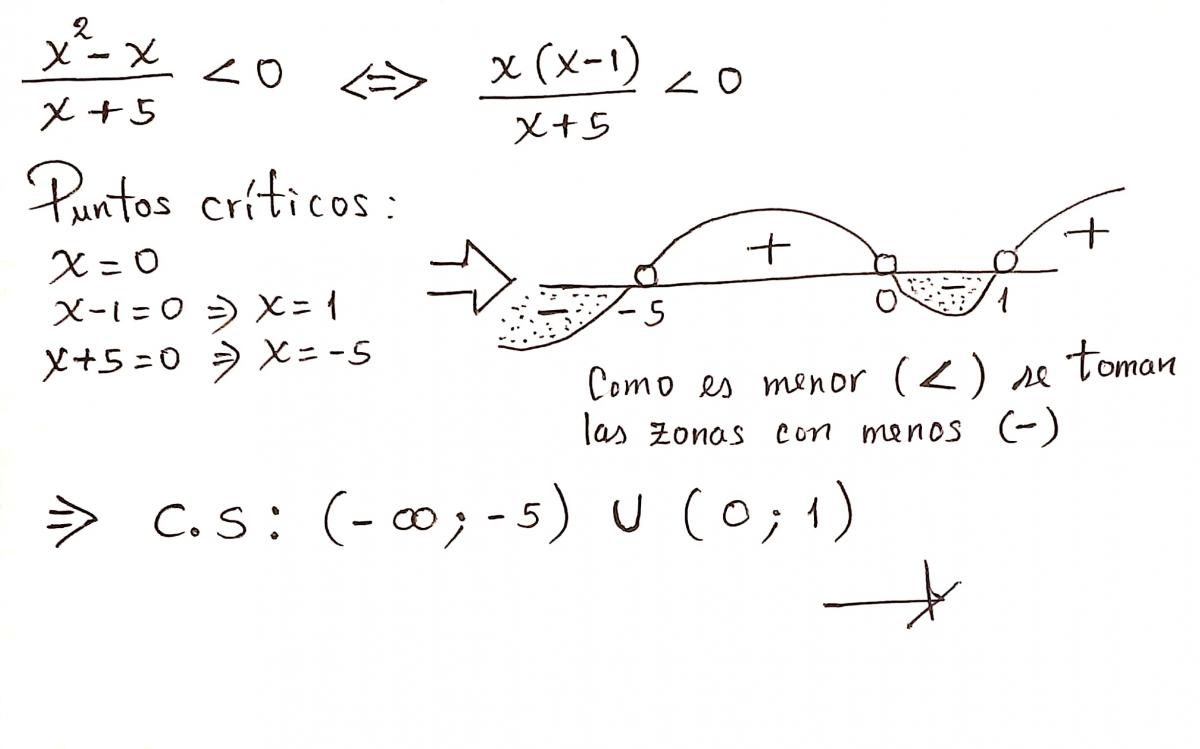 x² - x / x + 5 < 0 <=> x (x-1) / x+5 < 0
Puntos críticos:
x = 0
x-1=0 => x = 1
x+5=0 => x = -5
- -5 + 0 - 1 +
Como es menor (<) se toman
las zonas con menos (-)
=> C.S: (-∞; -5) ∪ (0; 1)